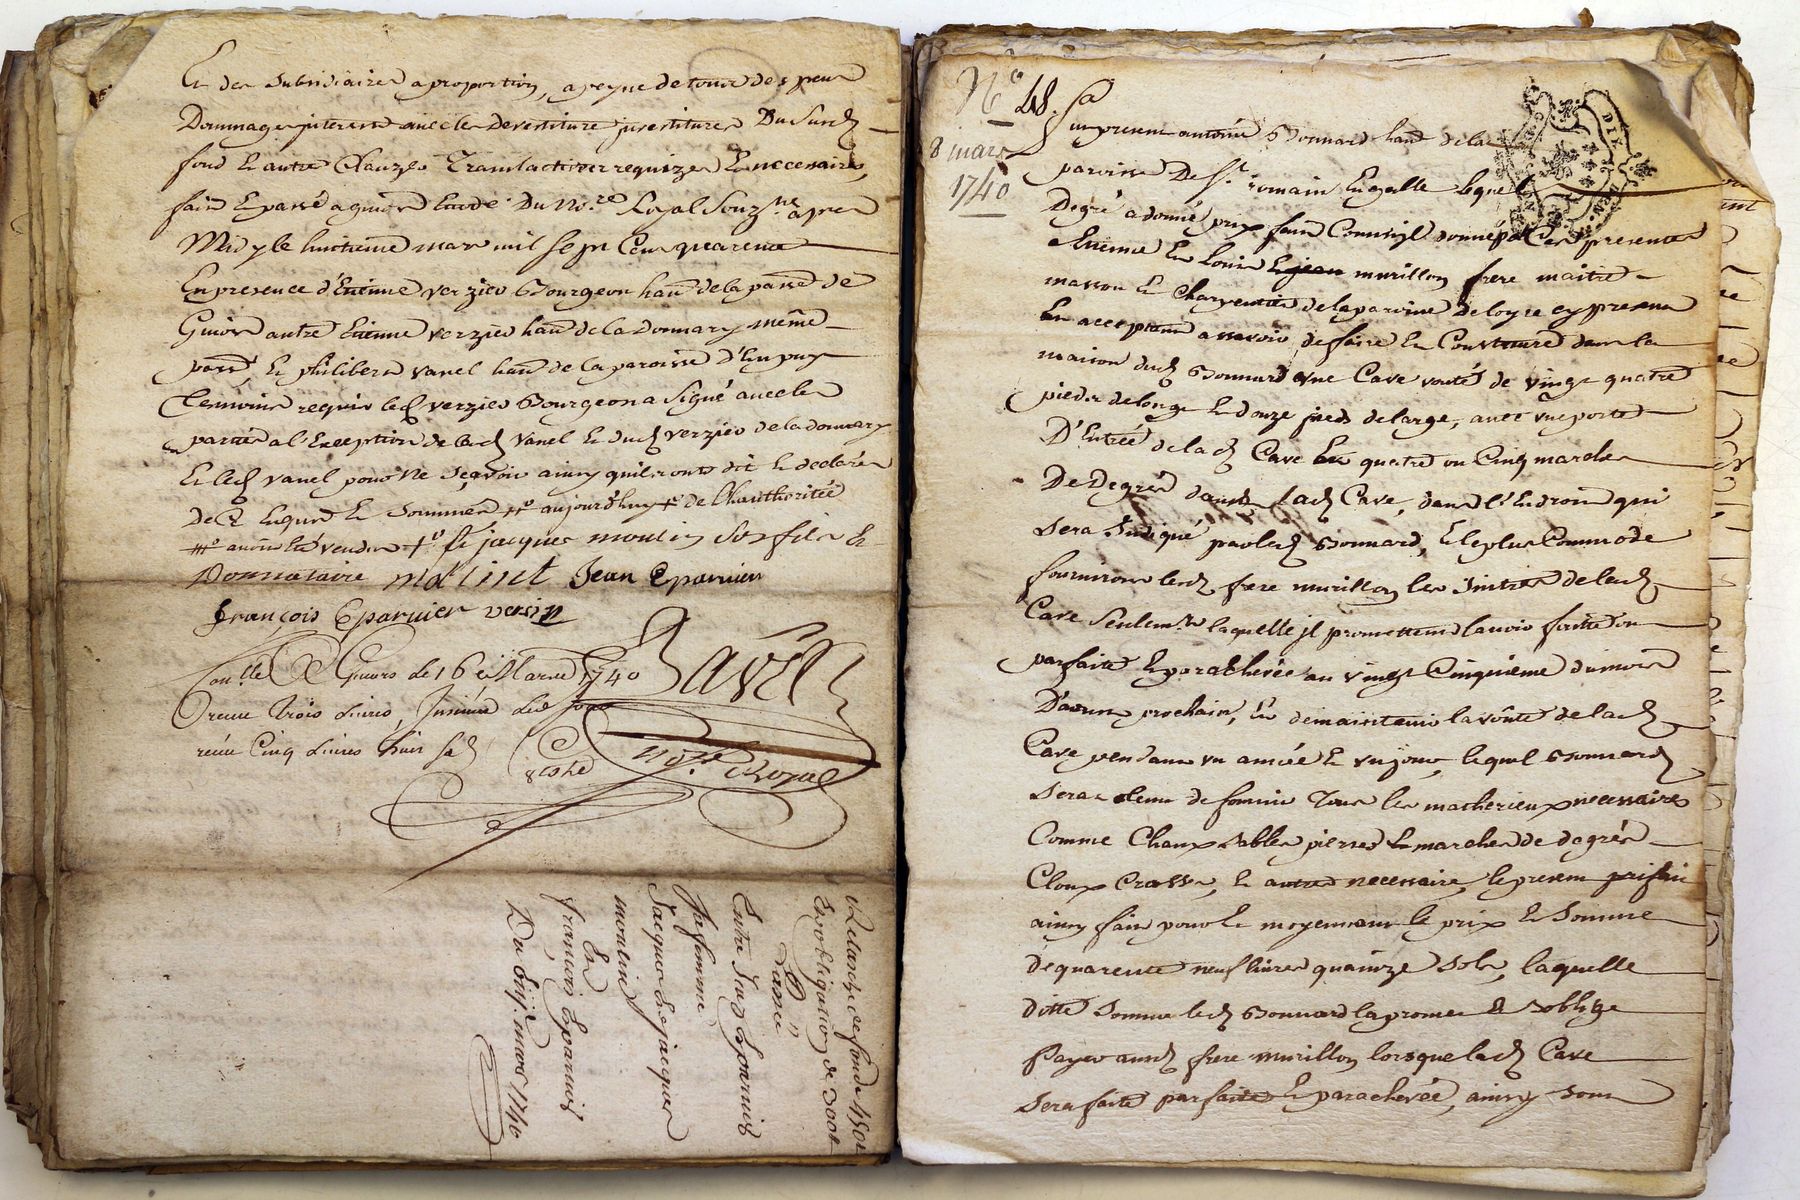 Et des subsidiaires a proportion, a peyne de tous despens
Dommages interests avec les devestiture investitures Du Surd
fond et autre Clauzes Translactives requizes et necessaires
fait et passé a givors Etude Du No.re Royal Souz.né apres
Midy le huitieme mars mil sept Cens quarente
En presence d'Etienne verzieu Bourgeon hant de la parr de
Givors autre Etienne verzieu hant de la donnary même
parr, et philibert vanel hant de la paroisse d'Empuy
Temoins requis led verzieu Bourgeon a signé avec les
parties a l'Exception de led vanel et dud verzieu de la donnary
Et led vanel pour ne sçavoir ainsy qu'ils ont dit et declaré
De ce Enquis et sommés aujourd'huy de l'hauthoritée
avoir été vendu st jacques moulin son fils et
Donnataire molint Jean Eparuier
françois Eparvier versin
Con.lle A Givors le 16e Mars 1740
receu trois livres, Insinué led jour
receu Cinq livres huit s.
Ravel
No.re Royal
Vente de fonds 450#
et obligation de 300#
Passée
Entre
sa femme
Jacques et jacques
moulin
Et
francois Eparvier
Du viij.e mars 1740
N.o 48.
8 mars
1740
fut present antoine Bonnard hant de la
paroisse De s.t romain En galle lequel
Degré a donné prix fait Comm'il donne par Ces presentes
a Etienne et Louis et jean murillon frere maitre
masson et Charpentier de la paroisse de loyre cy present
et acceptant assavoir de faire et Construire dans la
maison dud Bonnard une Cave voutée de vingt quatre
pieds de long et douze pieds de large, avec une porte
D'Entrée de la d Cave et quatre ou Cinq marches
De Degrés dans lad Cave, dans l'Endroit qui
sera Indiqué par led Bonnard, et le plus Commode
fourniront lesd frere murillon les Cintres de lad
Cave seulem.t laquelle jl promettent l'avoir faitte
parfaite et parachevée au vingt Cinquieme du mois
D'avril prochain, et de maintenir la vôute de lad
Cave pendant un année et un jour, lequel Bonnard
sera tenu de fournir Tous les matherieux necessaires
Comme Chaux sables pierres et marches de degrés
Cloux et autres necessaire, le present prisfait
ainsy fait pour et moyennant le prix et somme
de quarente neuf livres quainze sols, laquelle
ditte somme led Bonnard la promet et s'oblige
Payer auxd frere murillon lorsque lad Cave
sera faite parfaite et parachevée, ainsy sont